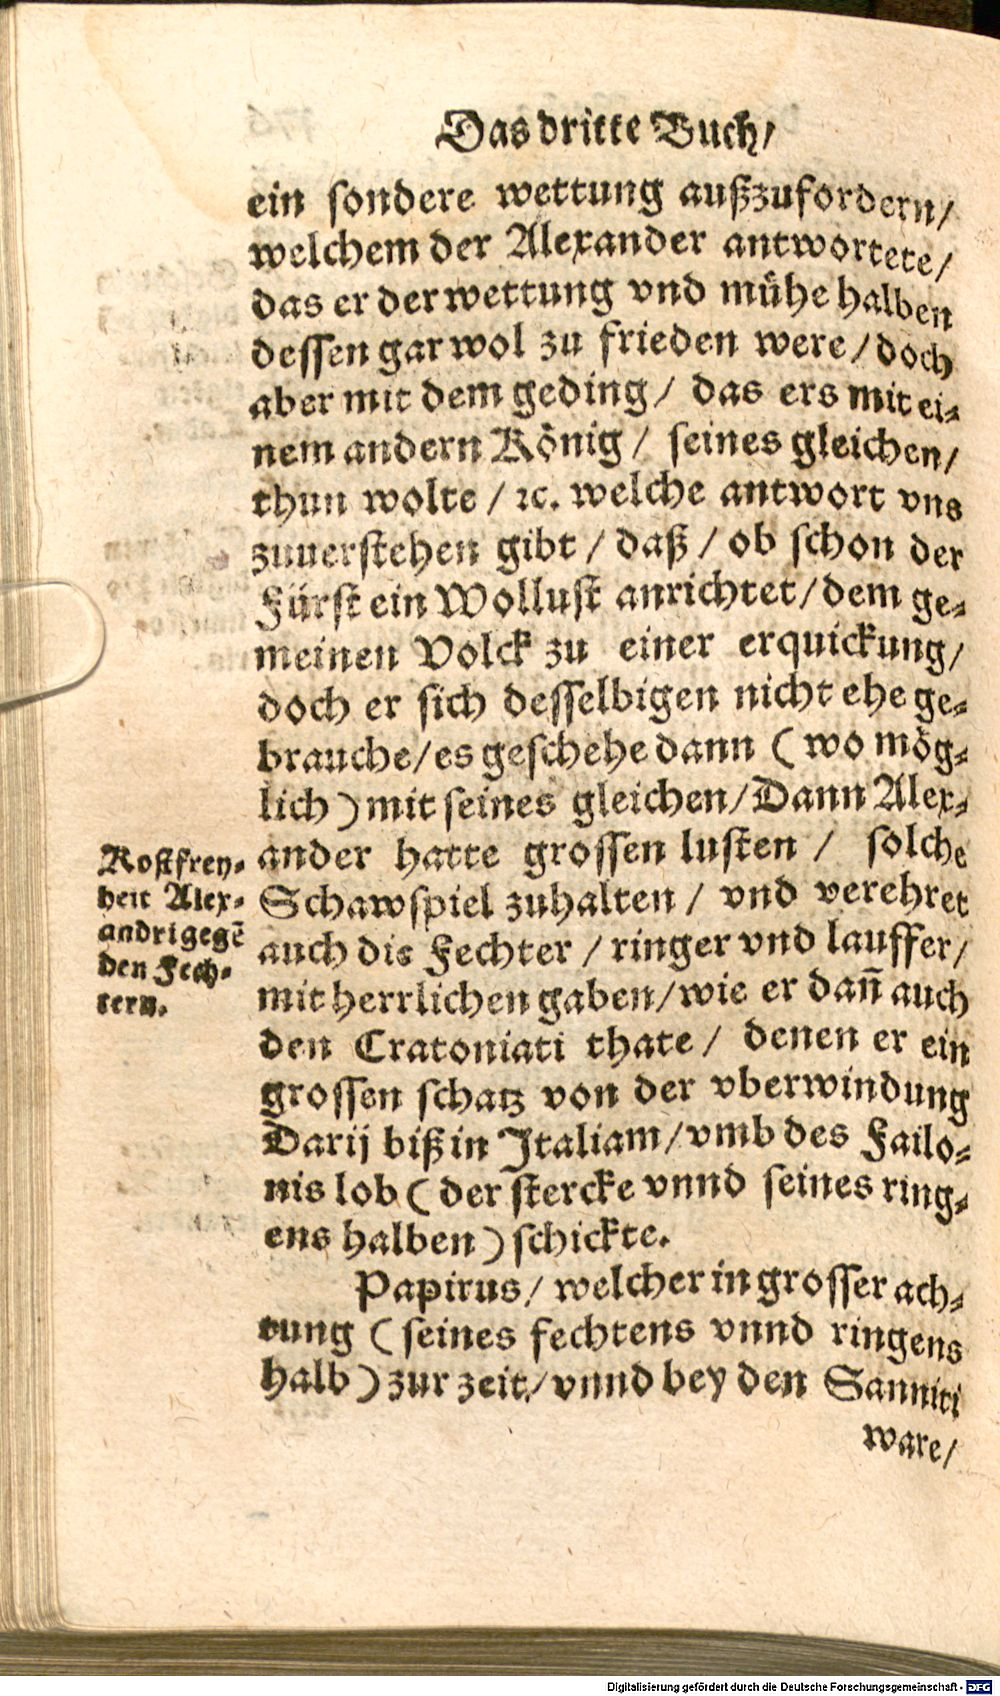 Das dritte Buch/
ein sondere wettung außzufordern/
welchem der Alexander antwortete/
das er der wettung vnd mühe halben
dessen gar wol zu frieden were/ doch
aber mit dem geding/ das ers mit ei-
nem andern König/ seines gleichen/
thun wolte/ ꝛc. welche antwort vns
zuuerstehen gibt/ daß/ ob schon der
Fürst ein Wollust anrichtet/ dem ge-
meinen Volck zu einer erquickung/
doch er sich desselbigen nicht ehe ge-
brauche/ es geschehe dann (wo mög-
lich) mit seines gleichen/ Dann Alex-
ander hatte grossen lusten/ solche
Schawspiel zuhalten/ vnd verehret
auch die Fechter/ ringer vnd lauffer/
mit herrlichen gaben/ wie er dañ auch
den Cratoniati thate/ denen er ein
grossen schatz von der vberwindung
Darij biß in Italiam/ vmb des Failo-
nis lob (der stercke vnnd seines ring-
ens halben) schickte.
Papirus/ welcher in grosser ach-
tung (seines fechtens vnnd ringens
halb) zur zeit/ vnnd bey den Sanniti
ware/
Kostfrey-
heit Alex-
andri gegẽ
den Fech-
tern.
Digitalisierung gefördert durch die Deutsche Forschungsgemeinschaft - DFG